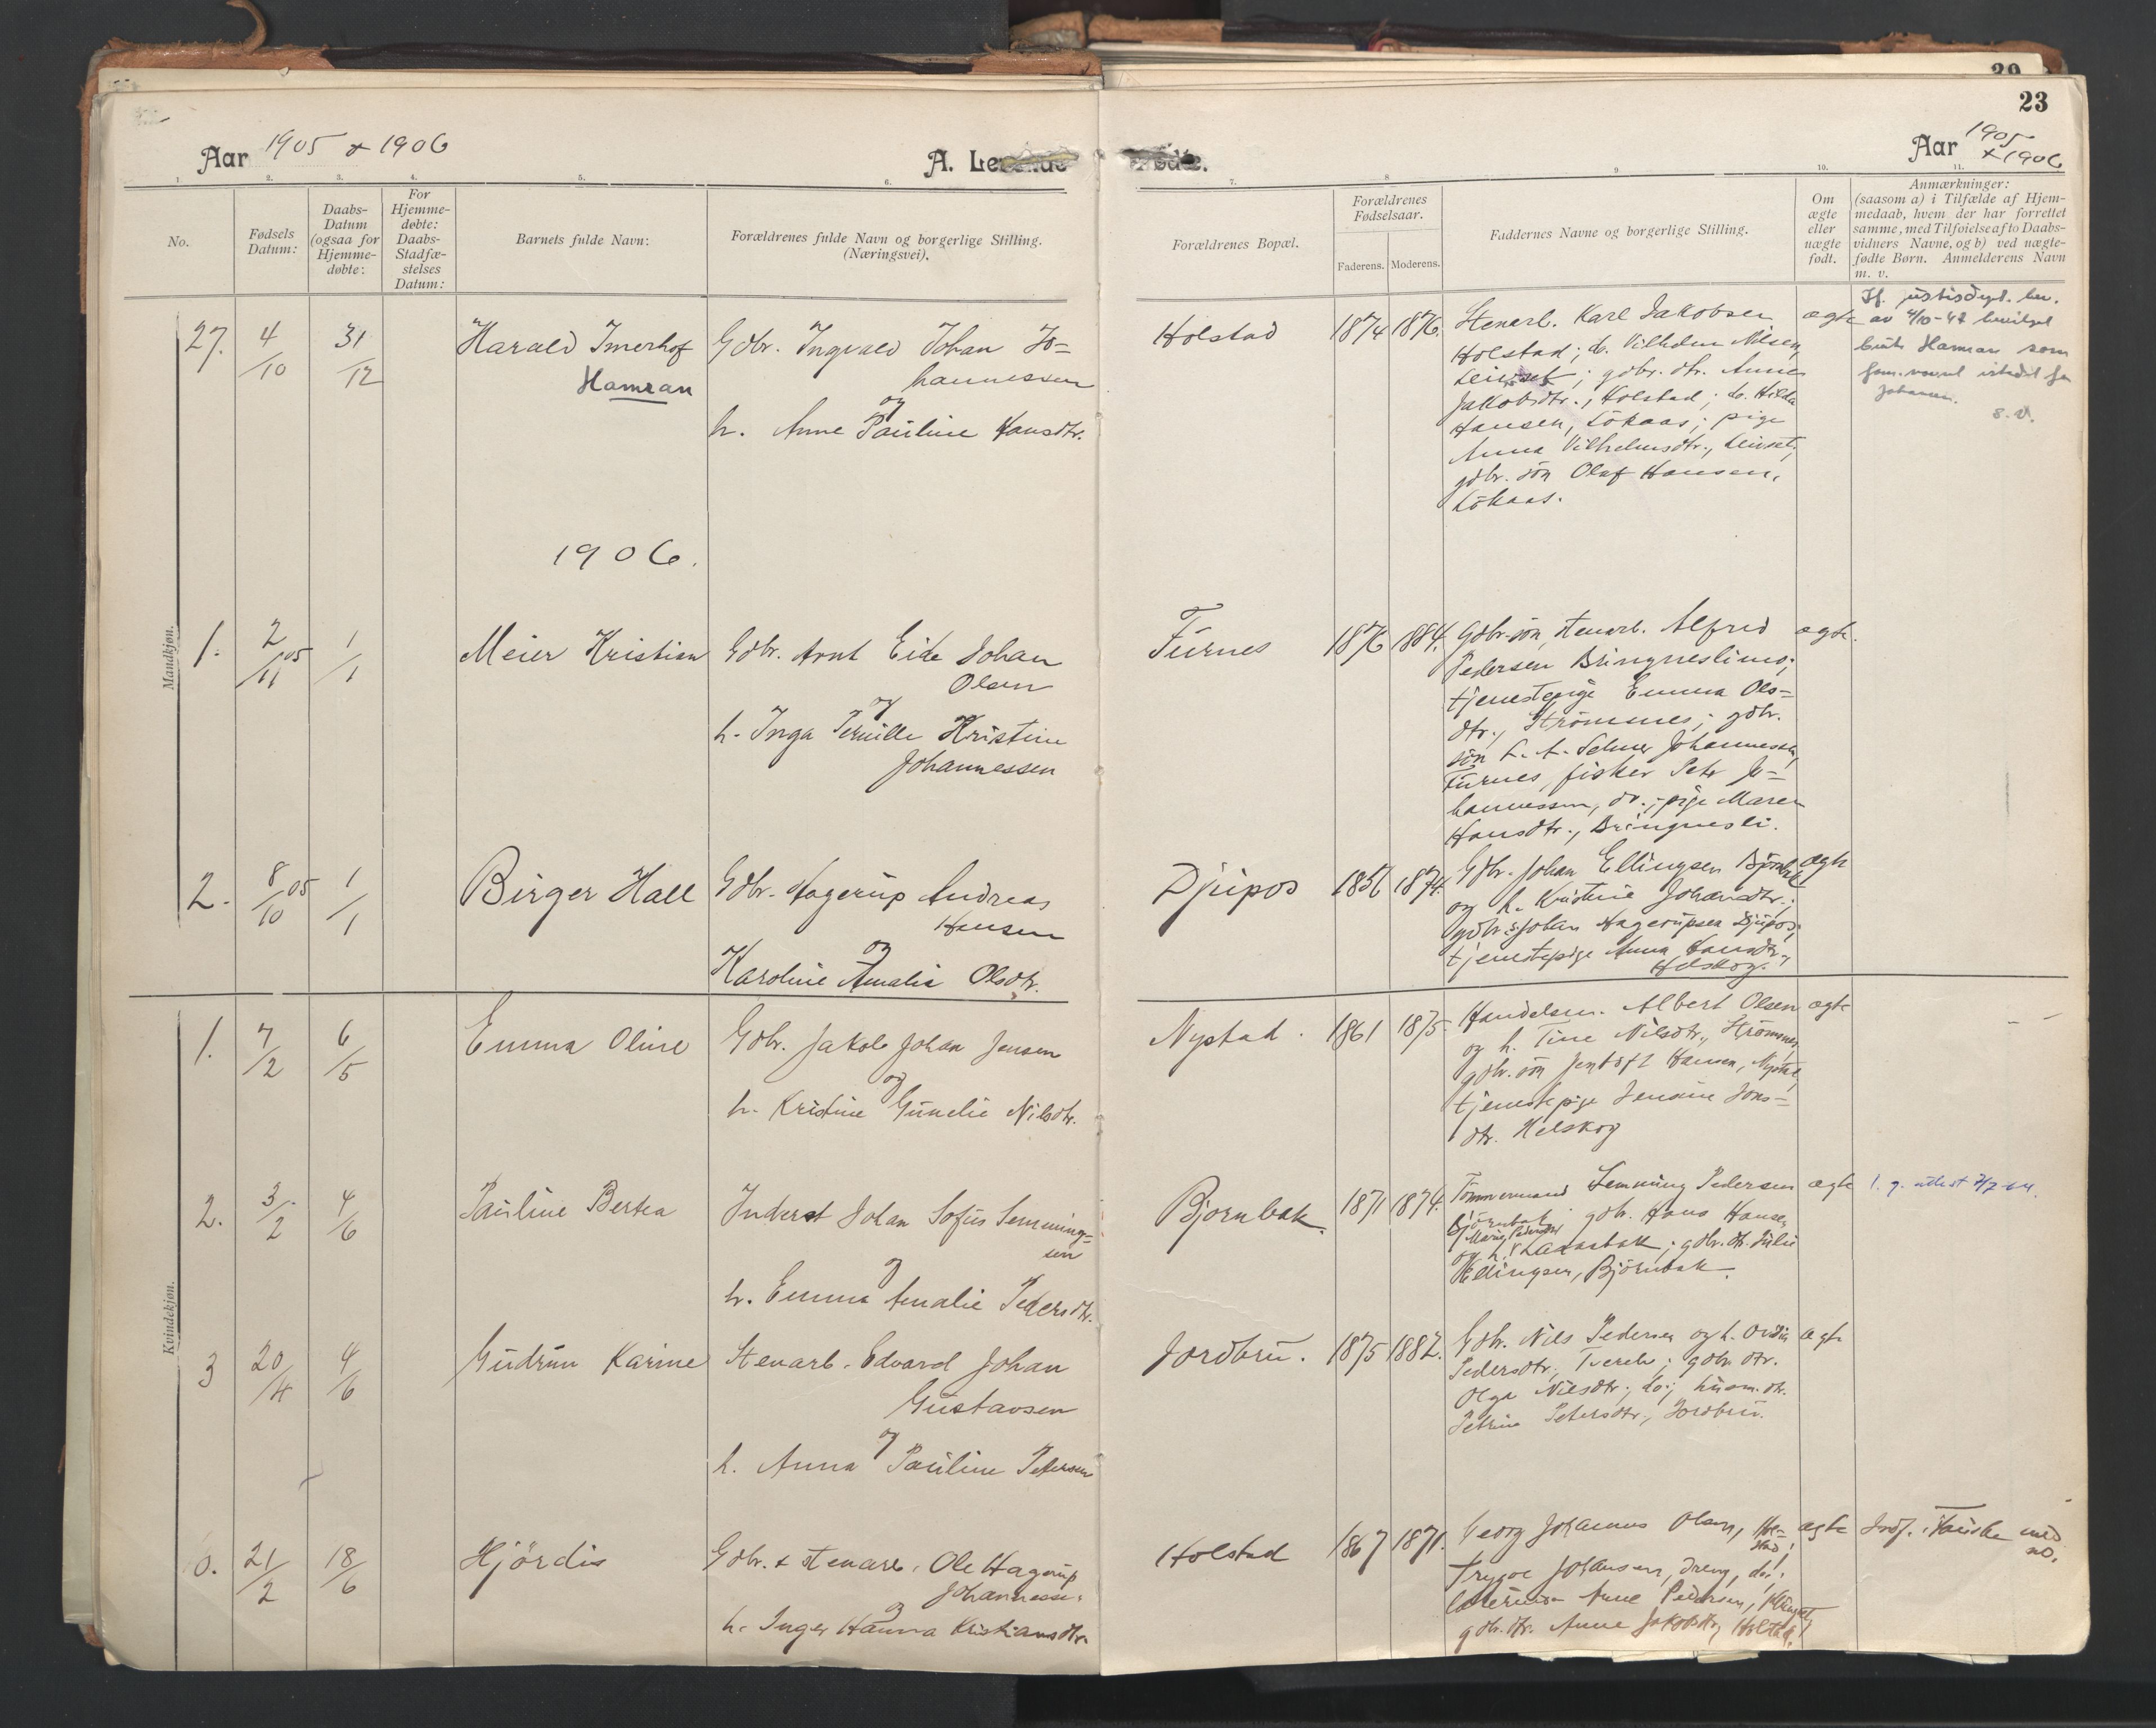 29
23
Aar 1905 & 1906
A. Levende
fødte.
Aar 1905
& 1906
1. 2. 3. 4. 5. 6. 7. 8. 9. 10. 11.
No.
Fødsels
Datum:
Daabs-
Datum
(ogsaa for
Hjemme-
døbte:
For
Hjemme-
døbte:
Daabs-
Stadfæ-
stelses
Datum:
Barnets fulde Navn:
Forældrenes fulde Navn og borgerlige Stilling.
(Næringsvei).
Forældrenes Bopæl.
Forældrenes
Fødselsaar.
Faderens. Moderens.
Faddernes Navne og borgerlige Stilling.
Om
ægte
eller
uægte
født.
Anmærkninger:
(saasom a) i Tilfælde af Hjem-
medaab, hvem der har forrettet
samme, med Tilføielse af to Daabs-
vidners Navne, og b) ved uægte-
fødte Børn. Anmelderens Navn
m. v.
Mandkjøn.
27. 4/10 31/12
Harald Imerhof
Hamran
Gdbr. Ingvald Johan Jo=
hannessen
og
h. Anne Pauline Hansdtr.
Holstad
1874 1876.
Stenarb. Karl Jakobsen
Holstad; do. Vilhelm Nilsen,
Leivset; gdbr. dtr. Anne
Jakobsdtr., Holstad; do. Hilda
Hansen, Løkaas; pige
Anna Vilhelmsdtr., Leivset;
gdbr. søn Olaf Hansen,
Løkaas.
ægte
If. justisdept. bev.
av 4/10-47 bevilget
bruke Hamran som
fam.navn istedet for
Johansen.
S.V.
1906.
1. 2/11 05 1/1
Meier Kristian
Gdbr. Arnt Eide Johan
Olsen
og
h. Inga Pernille Kristine
Johannessen
Furnes
1876 1884.
Gdbr. søn, stenarb. Alfred
Pedersen Bringneslimo;
tjenestepige Emma Ols=
dtr., Strømsnes; gdbr.
søn Selmer Johannessen,
Furnes, fisker Petr Jo=
hannessen, do.; pige Maren
Hansdtr., Bringnesli.
ægte.
2. 8/10 05 1/1
Birger Hall
Gdbr. Hagerup Andreas
Hansen
og
Karoline Amalia Olsdtr.
Djupos
1856 1874.
Gdbr. Johan Ellingsen Bjørnbak
og h. Kristine Johansdtr.;
gdbr. s. Johan Hagerupsen Djupos;
tjenestepige Anna Hansdtr.,
Helskog.
ægte
Kvindekjøn.
1. 7/2 6/5
Emma Oline
Gdbr. Jakob Johan Jensen
og
h. Kristine Gunelie Nilsdtr.
Nystad.
1861 1875.
Handelsm. Albert Olsen
og h. Tine Nilsdtr., Strømsnes,
gdbr. søn Jentoft Hansen, Nystad,
tjenestepige Jensine Jons=
dtr. Helskog
ægte
2. 3/2 4/6
Pauline Bertea
Inderst Johan Sofus Semming=
sen
og
h. Emma Amalie Pedersdtr.
Bjørnbak.
1871 1874.
Tømmermand Semming Pedersen
Bjørnbak; gdbr. Hans Hansen
og h. Marie Pedersdtr Laxaabakk; gdbr. dtr. Julie
Ellingsen, Bjørnbak.
ægte
l. g. attest 7/7 44.
3 20/4 4/6
Gudrun Karine
Stenarb. Edvard Johan
Gustavsen
og
h. Anna Pauline Petersen
Jordbru.
1875 1882.
Gdbr. Nils Pedersen og h. Ovidia
Pedersdtr., Tverelv; gdbr. dtr.
Olga Nilsdtr., do; husm. dtr.
Petrine Petersdtr., Jordbru.
ægte
0. 21/2 18/6
Hjørdis
Gdbr. & stenarb. Ole Hagerup
Johannessen
og
h. Inger Hanna Kristiansdtr.
Holstad
1867 1871.
Georg Johannes Olsen, Hol=
stad;
Trygve Johansen, dreng, do;
Anne Pedersen,
gdbr. dtr. Anne Jakobsdtr, Holstad.
ægte
Indf. i Fauske med
no.